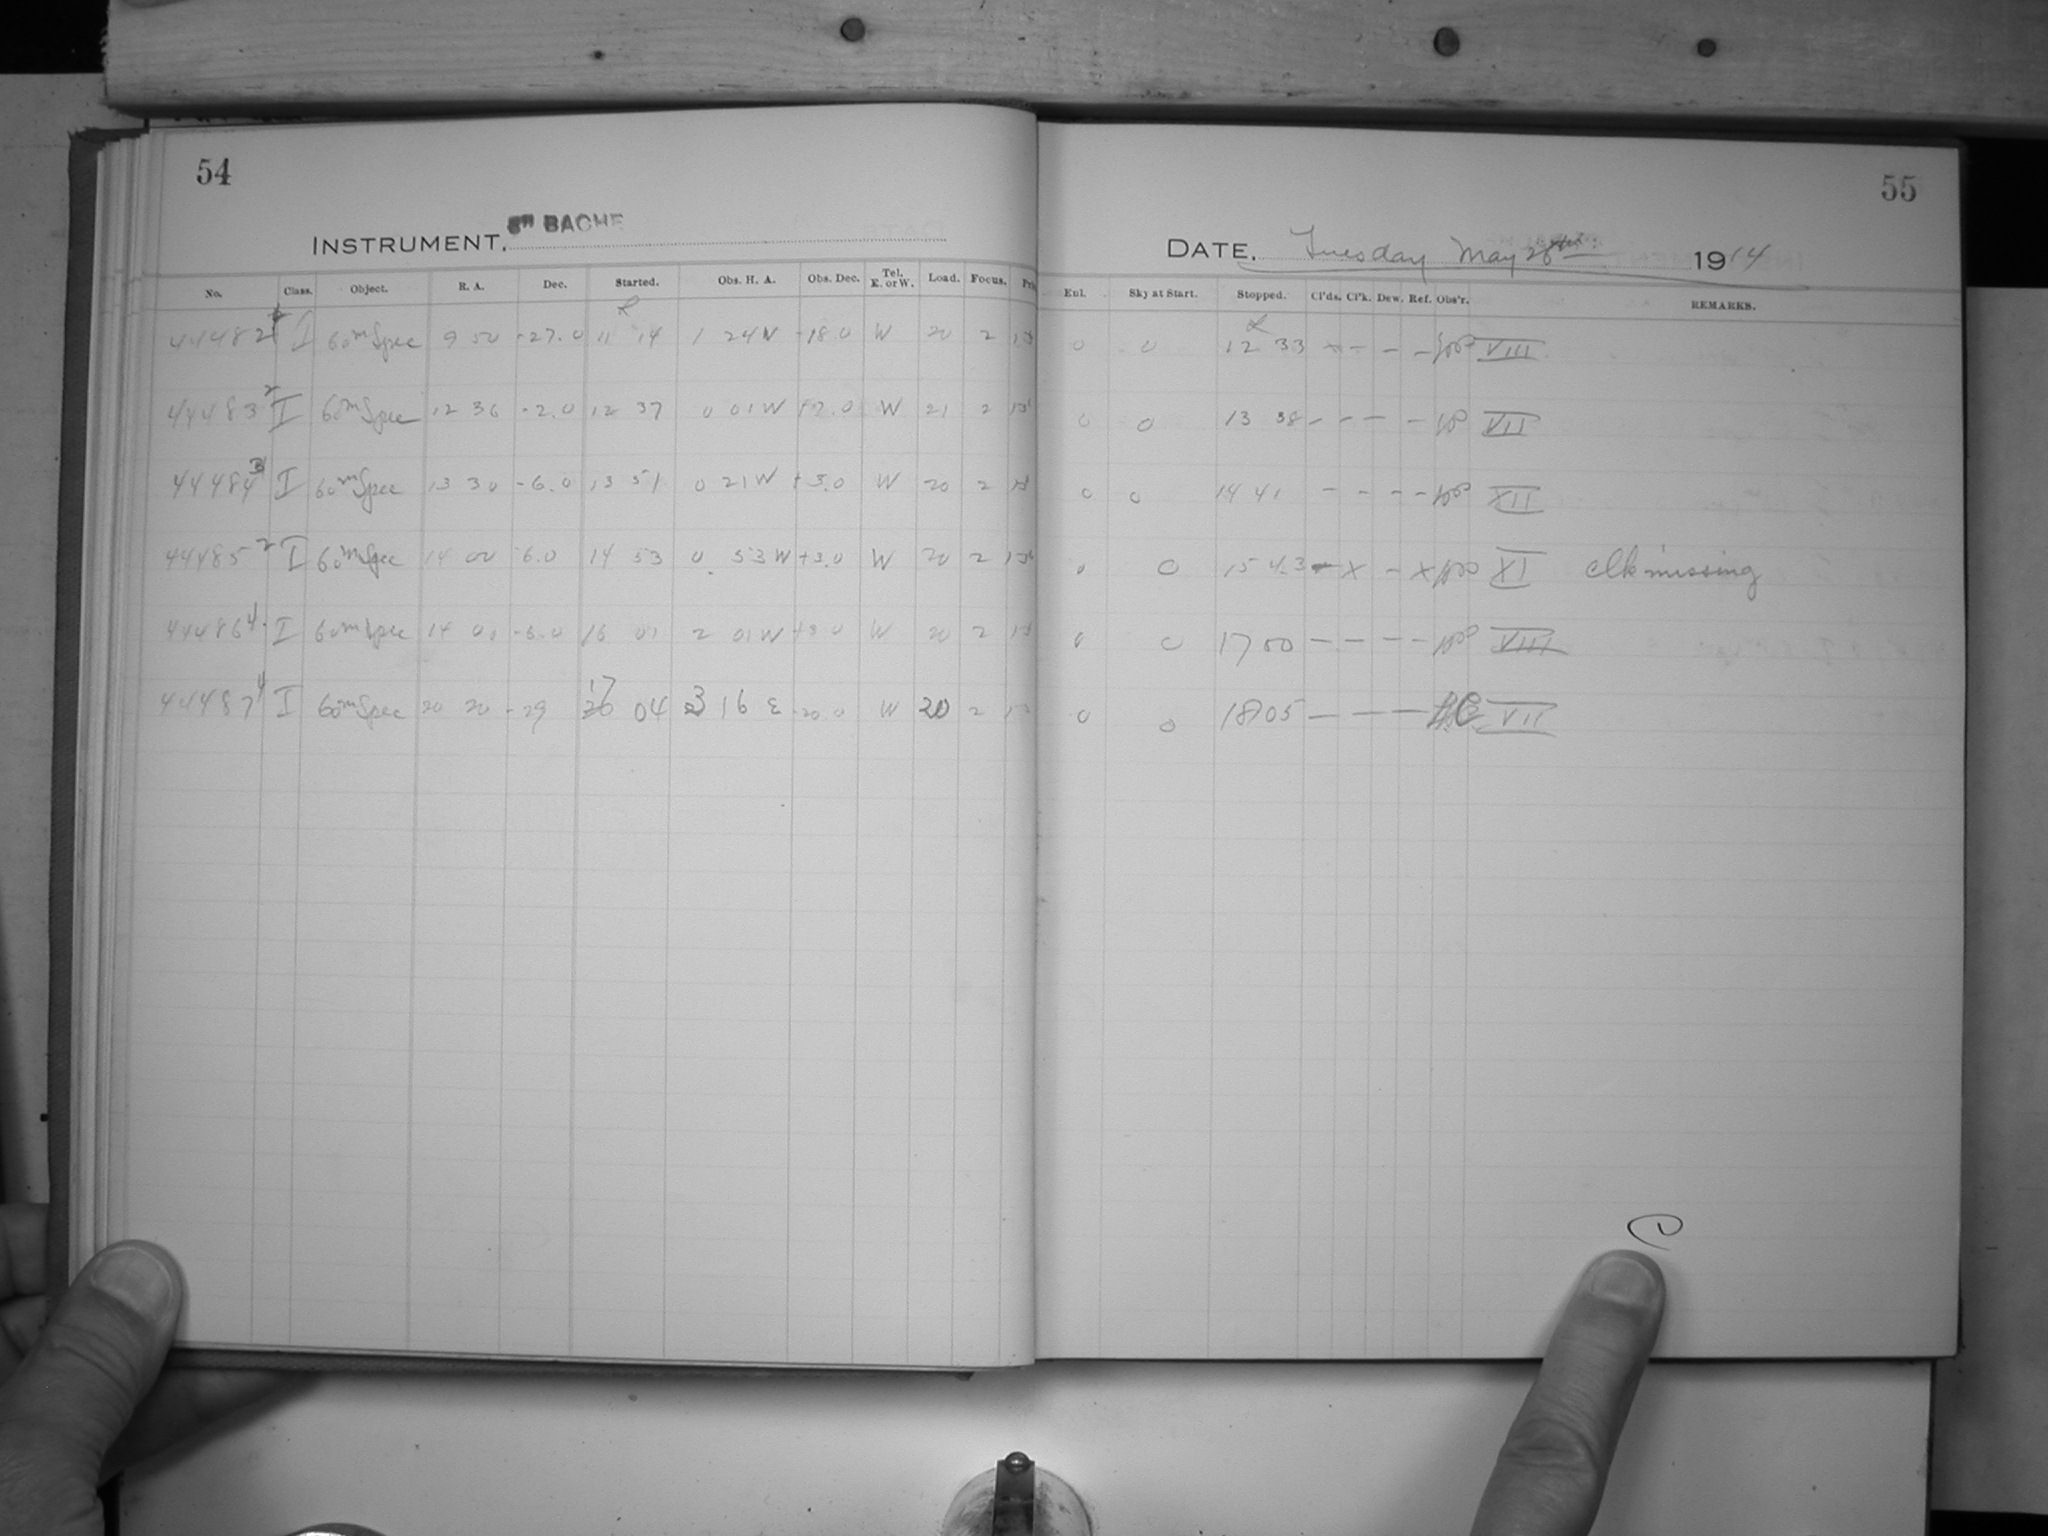 54
INSTRUMENT. 8" BACHE
No. Class. Object. R. A. Dec. Started. Obs. H. A. Obs. Dec. Tel. E. or W. Load. Focus.
44482 I 60m Spec 9 50 -27.0 11 14 1 24 W -18.0 W 20 2
44483 2 I 60m Spec 12 36 -2.0 12 37 0 01 W +7.0 W 21 2
44484 3 I 60m Spec 13 30 -6.0 13 51 0 21 W +3.0 W 20 2
44485 2 I 60m Spec 14 00 -6.0 14 53 0 53 W +3.0 W 20 2
44486 4 I 60m Spec 14 00 -6.0 16 01 2 01 W +3.0 W 20 2
44487 4 I 60m Spec 20 20 -29 17 04 3 16 E -20.0 W 20 2
55
DATE. Tuesday May 1914
Exl. Sky at Start. Stopped. Cl'ds. Cl'k. Dew. Ref. Obs'r. REMARKS.
0 0 12 33 - - - - VIII
0 0 13 38 - - - - VII
0 0 14 41 - - - - XII
0 0 15 43 - X - X XI clk missing
0 0 17 00 - - - - VIII
0 0 18 05 - - - - VII